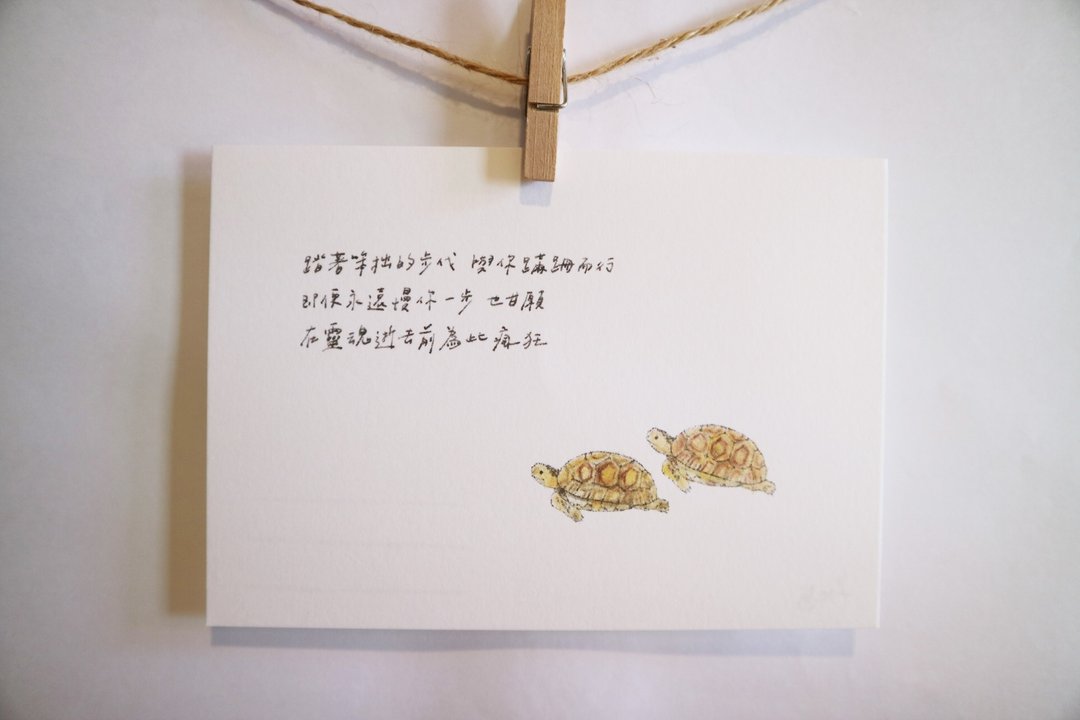 踏著笨拙的步伐 與你蹣跚而行
即便永遠慢你一步 也甘願
在靈魂逝去前為此瘋狂